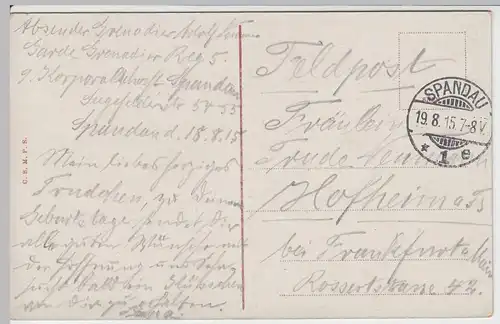 Absender Grenadier Adolf
Garde Grenadier Reg 5.
9. Korporalschaft Spandau
Str 54-55
Spandau d. 18.8.15
Mein liebes herziges
Trudchen, zu Deinem
Geburtstage sendet Dir
alle guten Wünsche mit
der Hoffnung und
bald ein
von Dir zu erhalten.
C. E. M. E. B.
Feldpost
Fräulein
Trude
Hofheim a/Ts
bei Frankfurt a. Main
Rossertstrasse 42.
SPANDAU
19.8.15.7-8V.
* 1 e